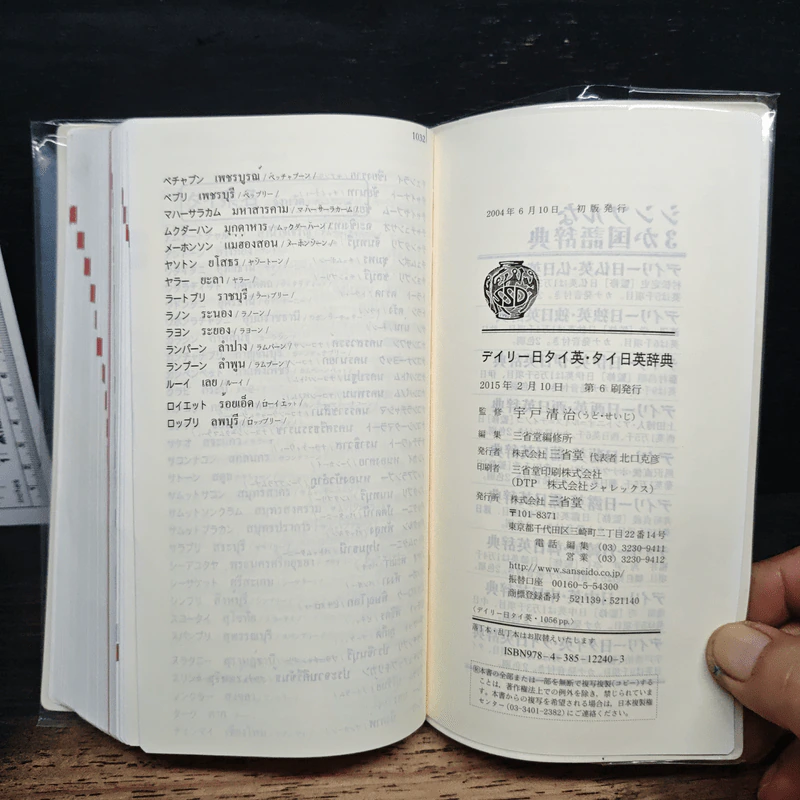 1032
ペチャブン เพชรบูรณ์ /ペッチャブーン/
ペブリ เพชรบุรี /ペッブリー/
マハーサラカム มหาสารคาม /マハーサーラカーム/
ムクダーハン มุกดาหาร /ムックダーハーン/
メーホンソン แม่ฮ่องสอน /メーホンソーン/
ヤソトン ยโสธร /ヤソートーン/
ヤラー ยะลา /ヤラー/
ラートブリ ราชบุรี /ラーッブリー/
ラノン ระนอง /ラノーン/
ラヨン ระยอง /ラヨーン/
ランパーン ลำปาง /ラムパーン/
ランプーン ลำพูน /ラムプーン/
ルーイ เลย /ルーイ/
ロイエット ร้อยเอ็ด /ローイエット/
ロッブリ ลพบุรี /ロッブリー/
2004年6月10日 初版発行
SSD
デイリー日タイ英・タイ日英辞典
2015年2月10日 第6刷発行
監修 宇戸清治(うど・せいじ)
編集 三省堂編修所
発行者 株式会社 三省堂 代表者 北口克彦
印刷者 三省堂印刷株式会社
(DTP 株式会社ジャレックス)
発行所 株式会社 三省堂
〒101-8371
東京都千代田区三崎町二丁目22番14号
電話 編集 (03) 3230-9411
営業 (03) 3230-9412
http://www.sanseido.co.jp/
振替口座 00160-5-54300
商標登録番号 521139・521140
〈デイリー日タイ英・1056pp.〉
落丁本・乱丁本はお取替えいたします
ISBN978-4-385-12240-3
本書の全部または一部を無断で複写複製(コピー)する
ことは、著作権法上での例外を除き、禁じられていま
す。本書からの複写を希望される場合は、日本複製権
センター(03-3401-2382)にご連絡ください。